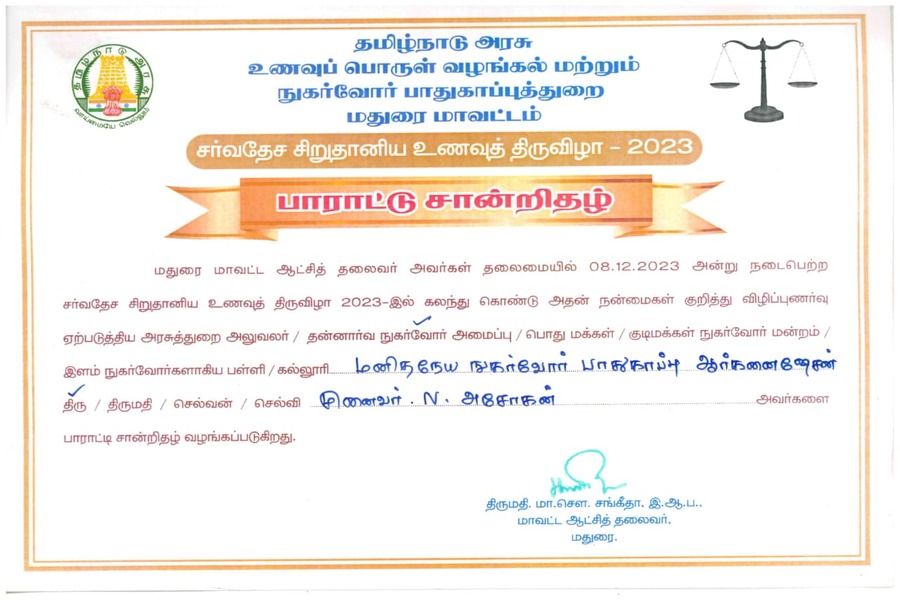 தமிழ்நாடு அரசு
உணவுப் பொருள் வழங்கல் மற்றும்
நுகர்வோர் பாதுகாப்புத்துறை
மதுரை மாவட்டம்
தமிழ்நாடு அரசு
வாய்மையே வெல்லும்
சர்வதேச சிறுதானிய உணவுத் திருவிழா - 2023
பாராட்டு சான்றிதழ்
மதுரை மாவட்ட ஆட்சித் தலைவர் அவர்கள் தலைமையில் 08.12.2023 அன்று நடைபெற்ற
சர்வதேச சிறுதானிய உணவுத் திருவிழா 2023-இல் கலந்து கொண்டு அதன் நன்மைகள் குறித்து விழிப்புணர்வு
ஏற்படுத்திய அரசுத்துறை அலுவலர் / தன்னார்வ நுகர்வோர் அமைப்பு / பொது மக்கள் / குடிமக்கள் நுகர்வோர் மன்றம் /
இளம் நுகர்வோர்களாகிய பள்ளி / கல்லூரி மனிதநேய நுகர்வோர் பாதுகாப்பு ஆர்கனைஷேசன்
திரு / திருமதி / செல்வன் / செல்வி முனைவர். N. அசோகன் அவர்களை
பாராட்டி சான்றிதழ் வழங்கப்படுகிறது.
திருமதி. மா.சௌ. சங்கீதா, இ.ஆ.ப.,
மாவட்ட ஆட்சித் தலைவர்,
மதுரை.